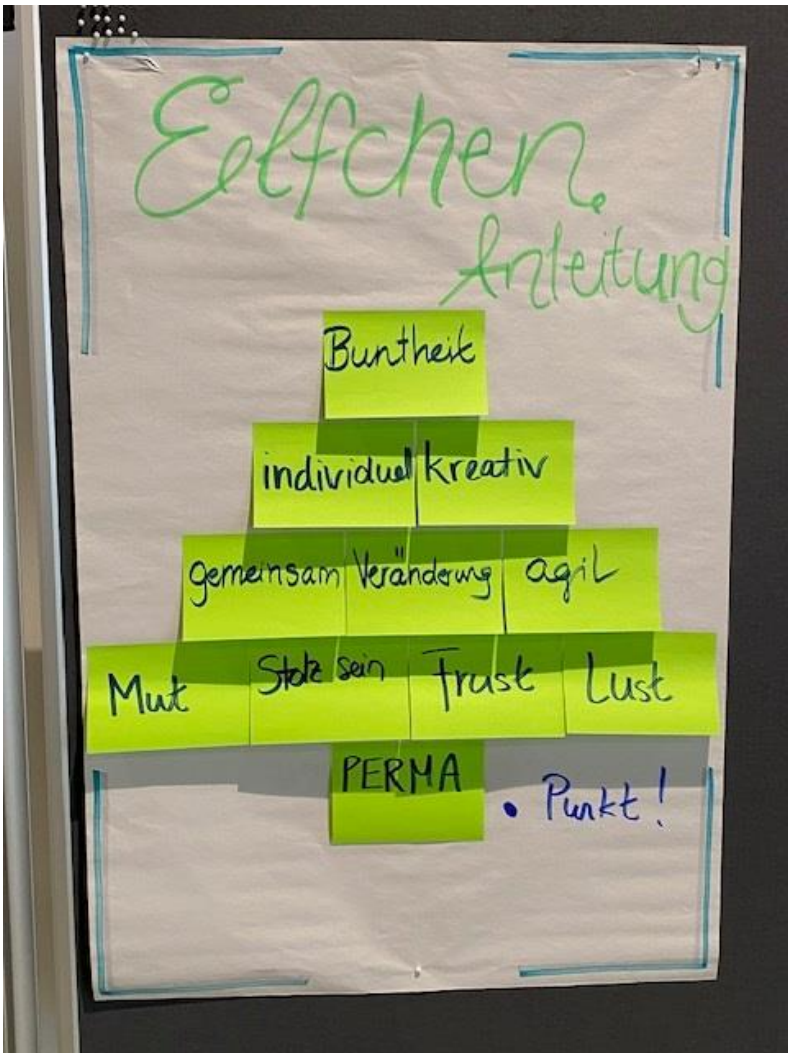 Elfchen
Anleitung
Buntheit
individuell kreativ
gemeinsam Veränderung agil
Mut Stolz sein Frust Lust
PERMA . Punkt!